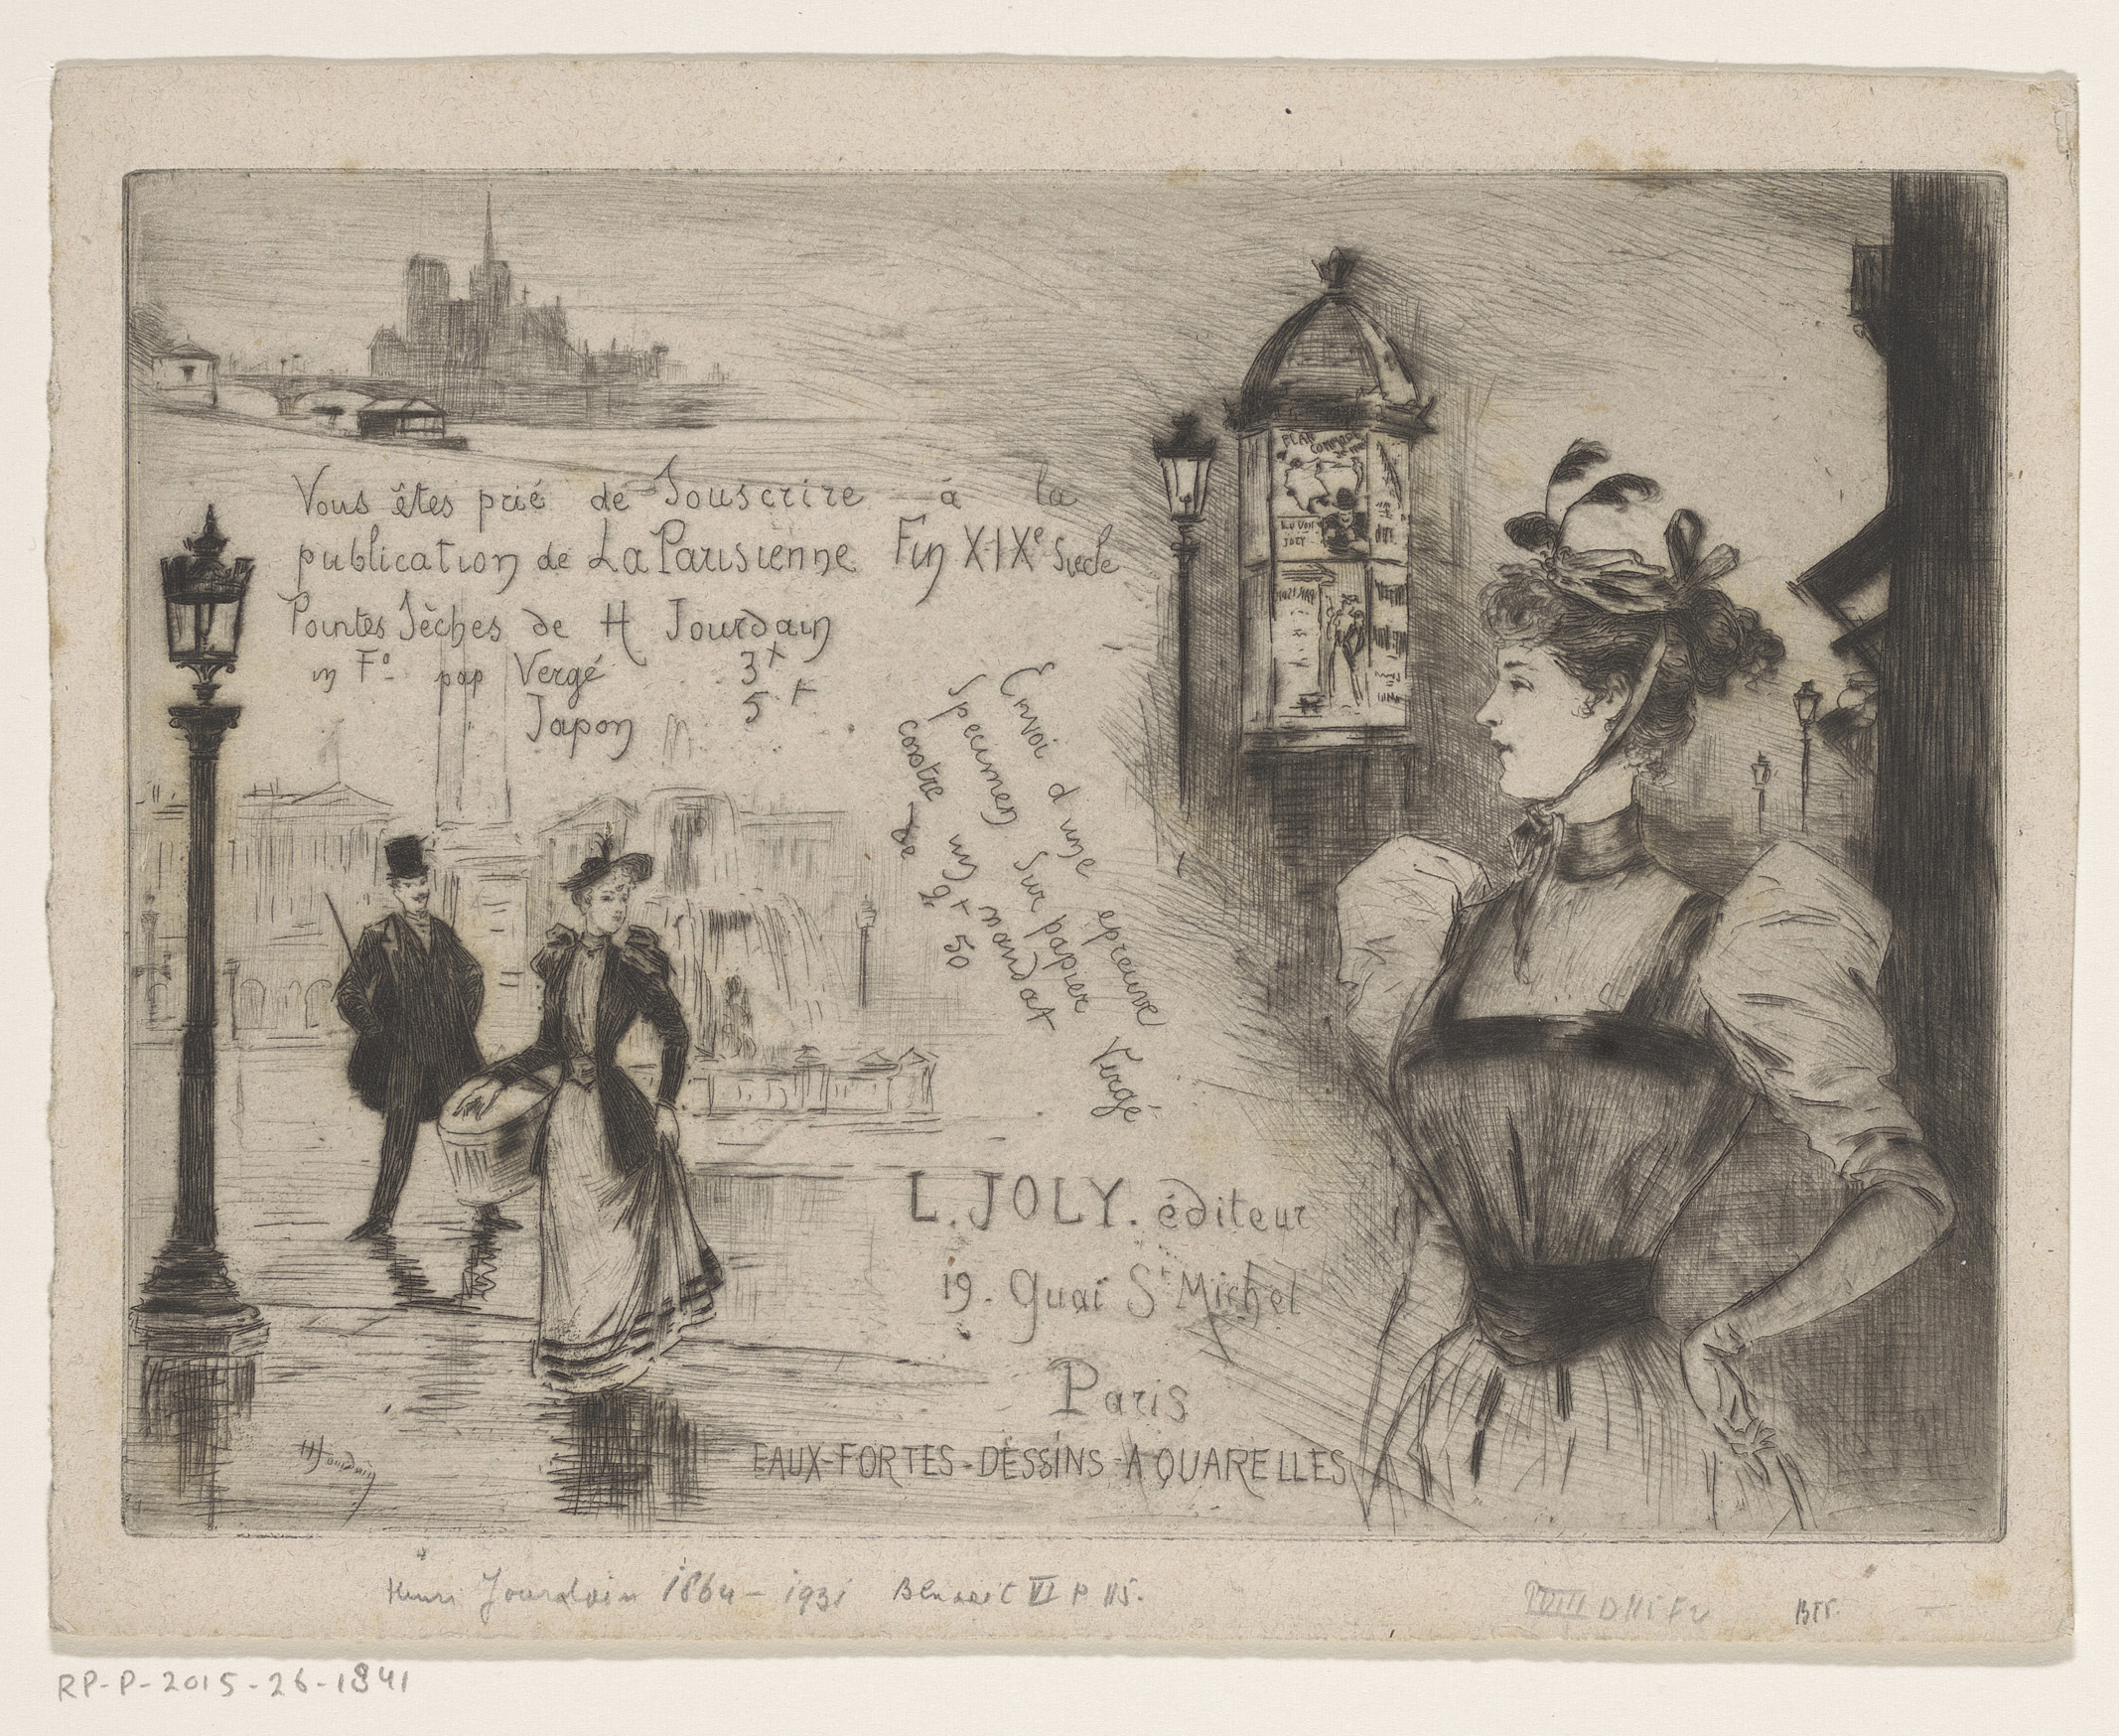 Vous êtes prié de Souscrire à la
publication de La Parisienne Fin XIXe Siècle
Pointes Sèches de H Jourdain
in Fo pap Vergé 3f
Japon 5f
Envoi d'une epreuve Vergé
Specimen sur papier
contre un mandat
de 2f 50
PLAN
L. JOLY. éditeur
19. Quai St Michel
Paris
EAUX-FORTES-DESSINS-AQUARELLES
H Jourdain
Henri Jourdain 1864-1931 VI P 115.
RP-P-2015-26-1841